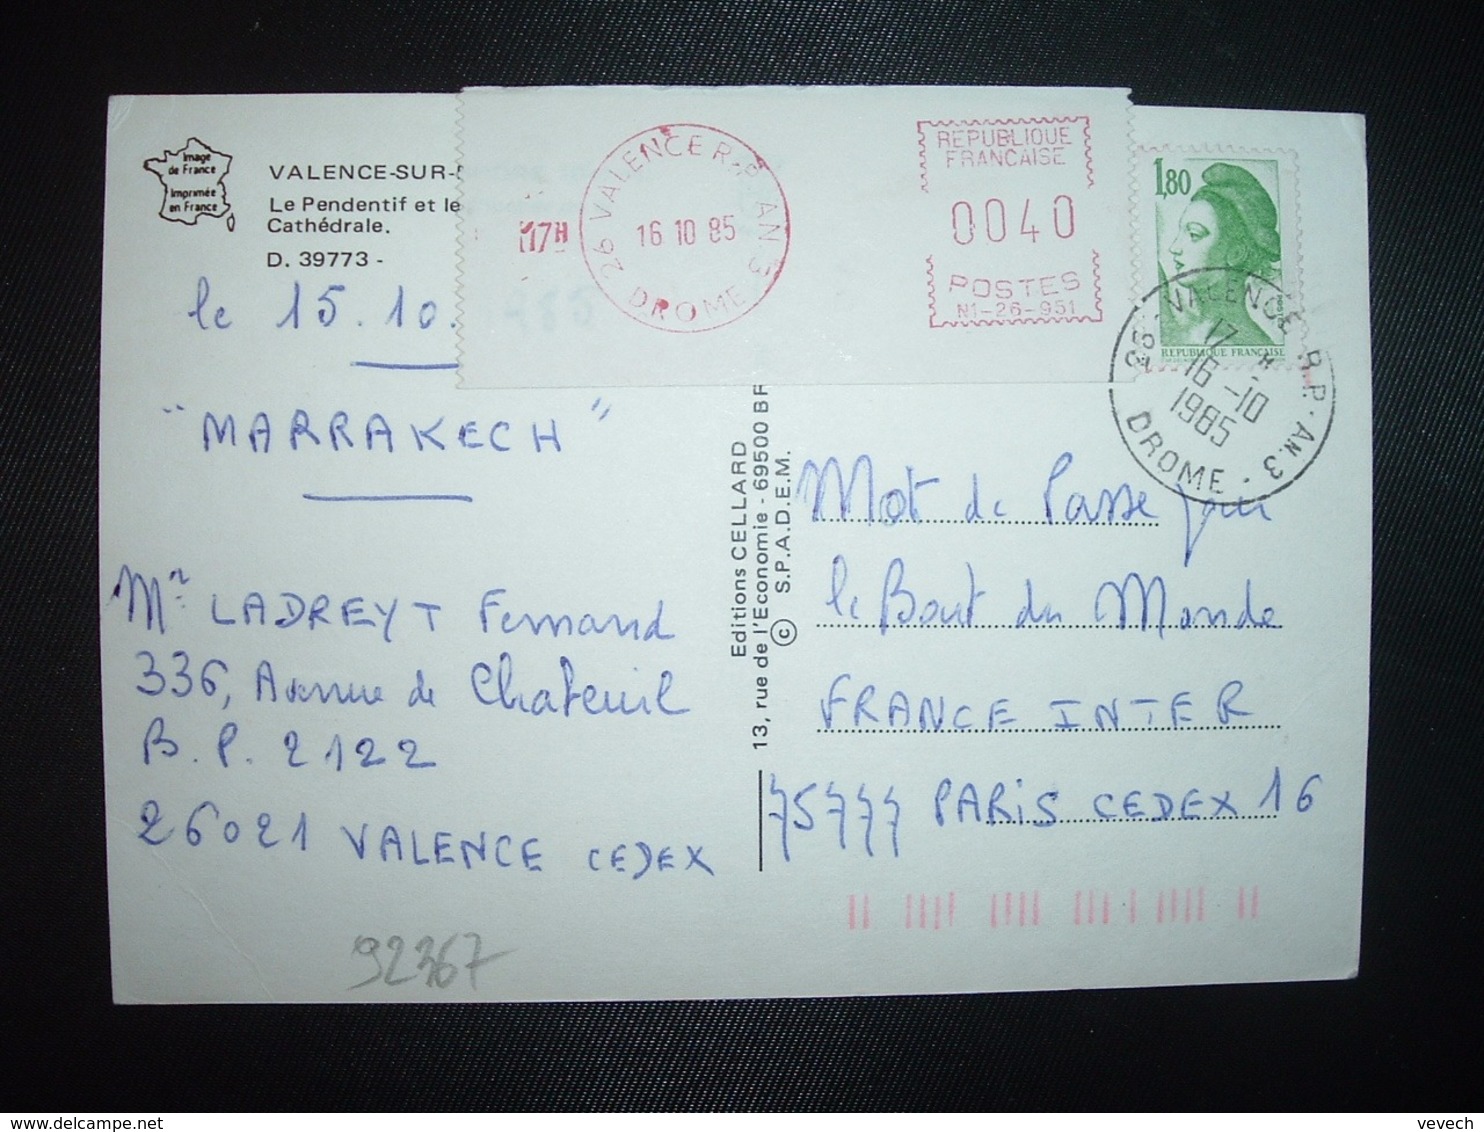 Image
de France
Imprimée
en France
VALENCE-SUR-
Le Pendentif et le
Cathédrale.
D. 39773 -
17H
26 VALENCE R.P. AN. 3
16 10 85
DROME
REPUBLIQUE
FRANCAISE
0040
POSTES
N1-26-951
1,80
REPUBLIQUE FRANÇAISE
26 - VALENCE R.P. - AN. 3
17 H
16 -10
1985
DROME
le 15.10.
"MARRAKECH"
Mr LADREYT Fernand
336, Avenue de Chateuil
B.P. 2122
26021 VALENCE CEDEX
92367
Editions CELLARD
13, rue de l'Economie - 69500 BR
© S.P.A.D.E.M.
Mot de Passe pour
le Bout du Monde
FRANCE INTER
75777 PARIS CEDEX 16
vevech